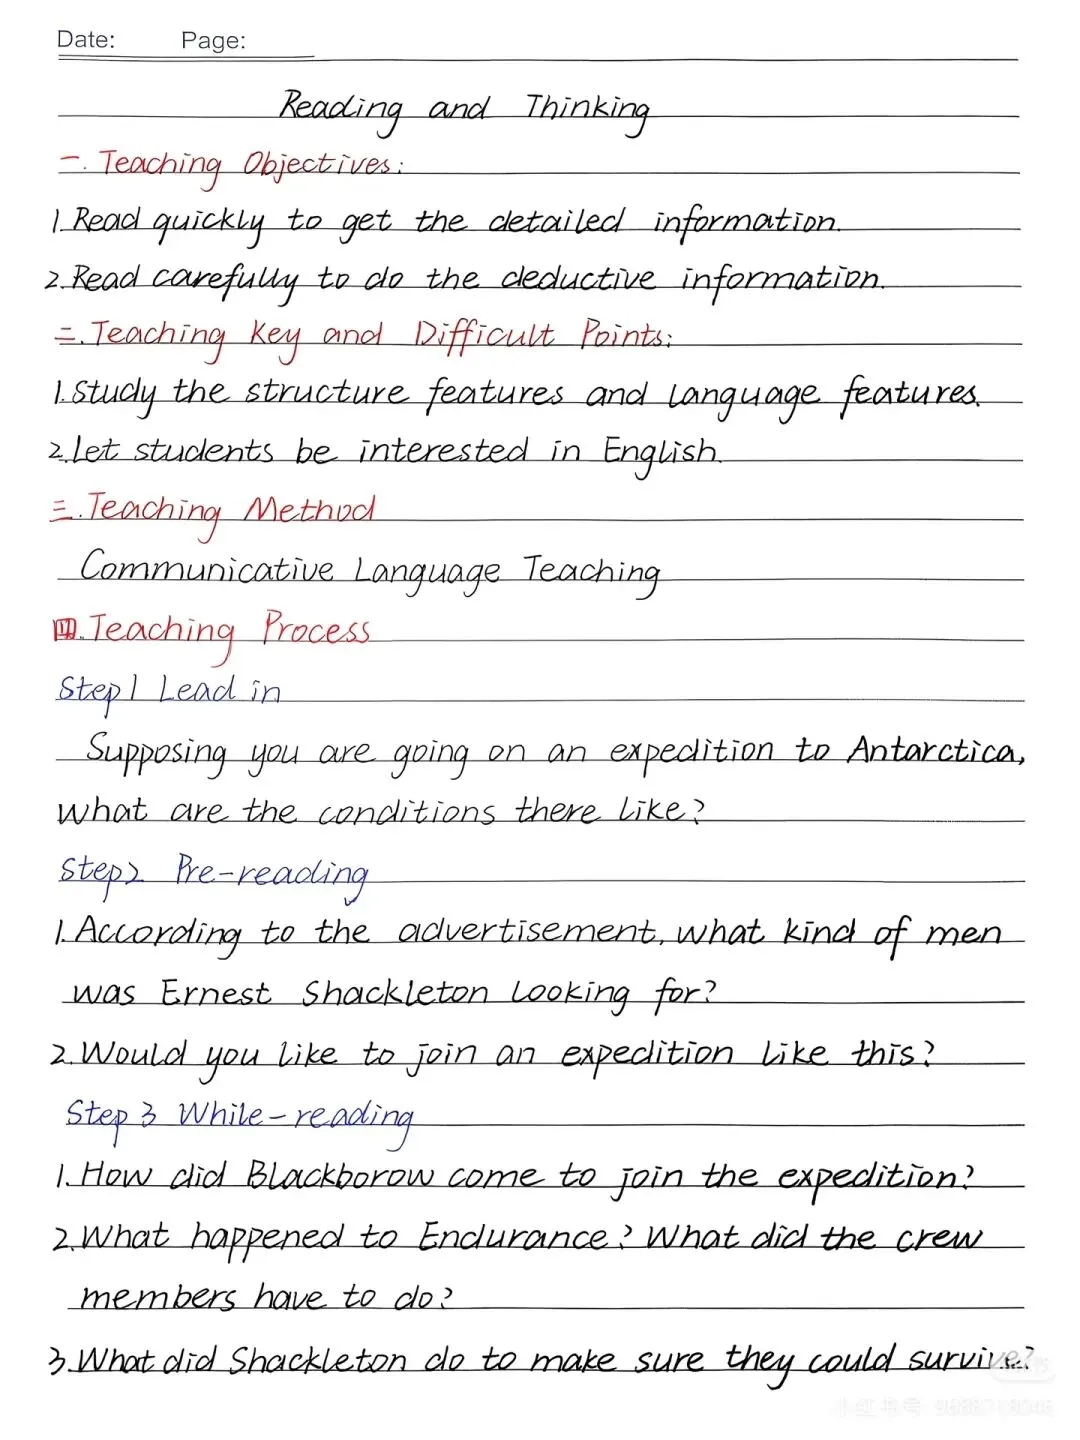 Date: Page:
Reading and Thinking
一. Teaching Objectives:
1. Read quickly to get the detailed information.
2. Read carefully to do the deductive information.
二. Teaching Key and Difficult Points:
1. Study the structure features and language features.
2. Let students be interested in English.
三. Teaching Method
Communicative Language Teaching
四. Teaching Process
Step1 Lead in
Supposing you are going on an expedition to Antarctica,
What are the conditions there like?
Step2 Pre-reading
1. According to the advertisement, what kind of men
was Ernest Shackleton looking for?
2. Would you like to join an expedition like this?
Step 3 While-reading
1. How did Blackborow come to join the expedition?
2. What happened to Endurance? What did the crew
members have to do?
3. What did Shackleton do to make sure they could survive?
小红书号: